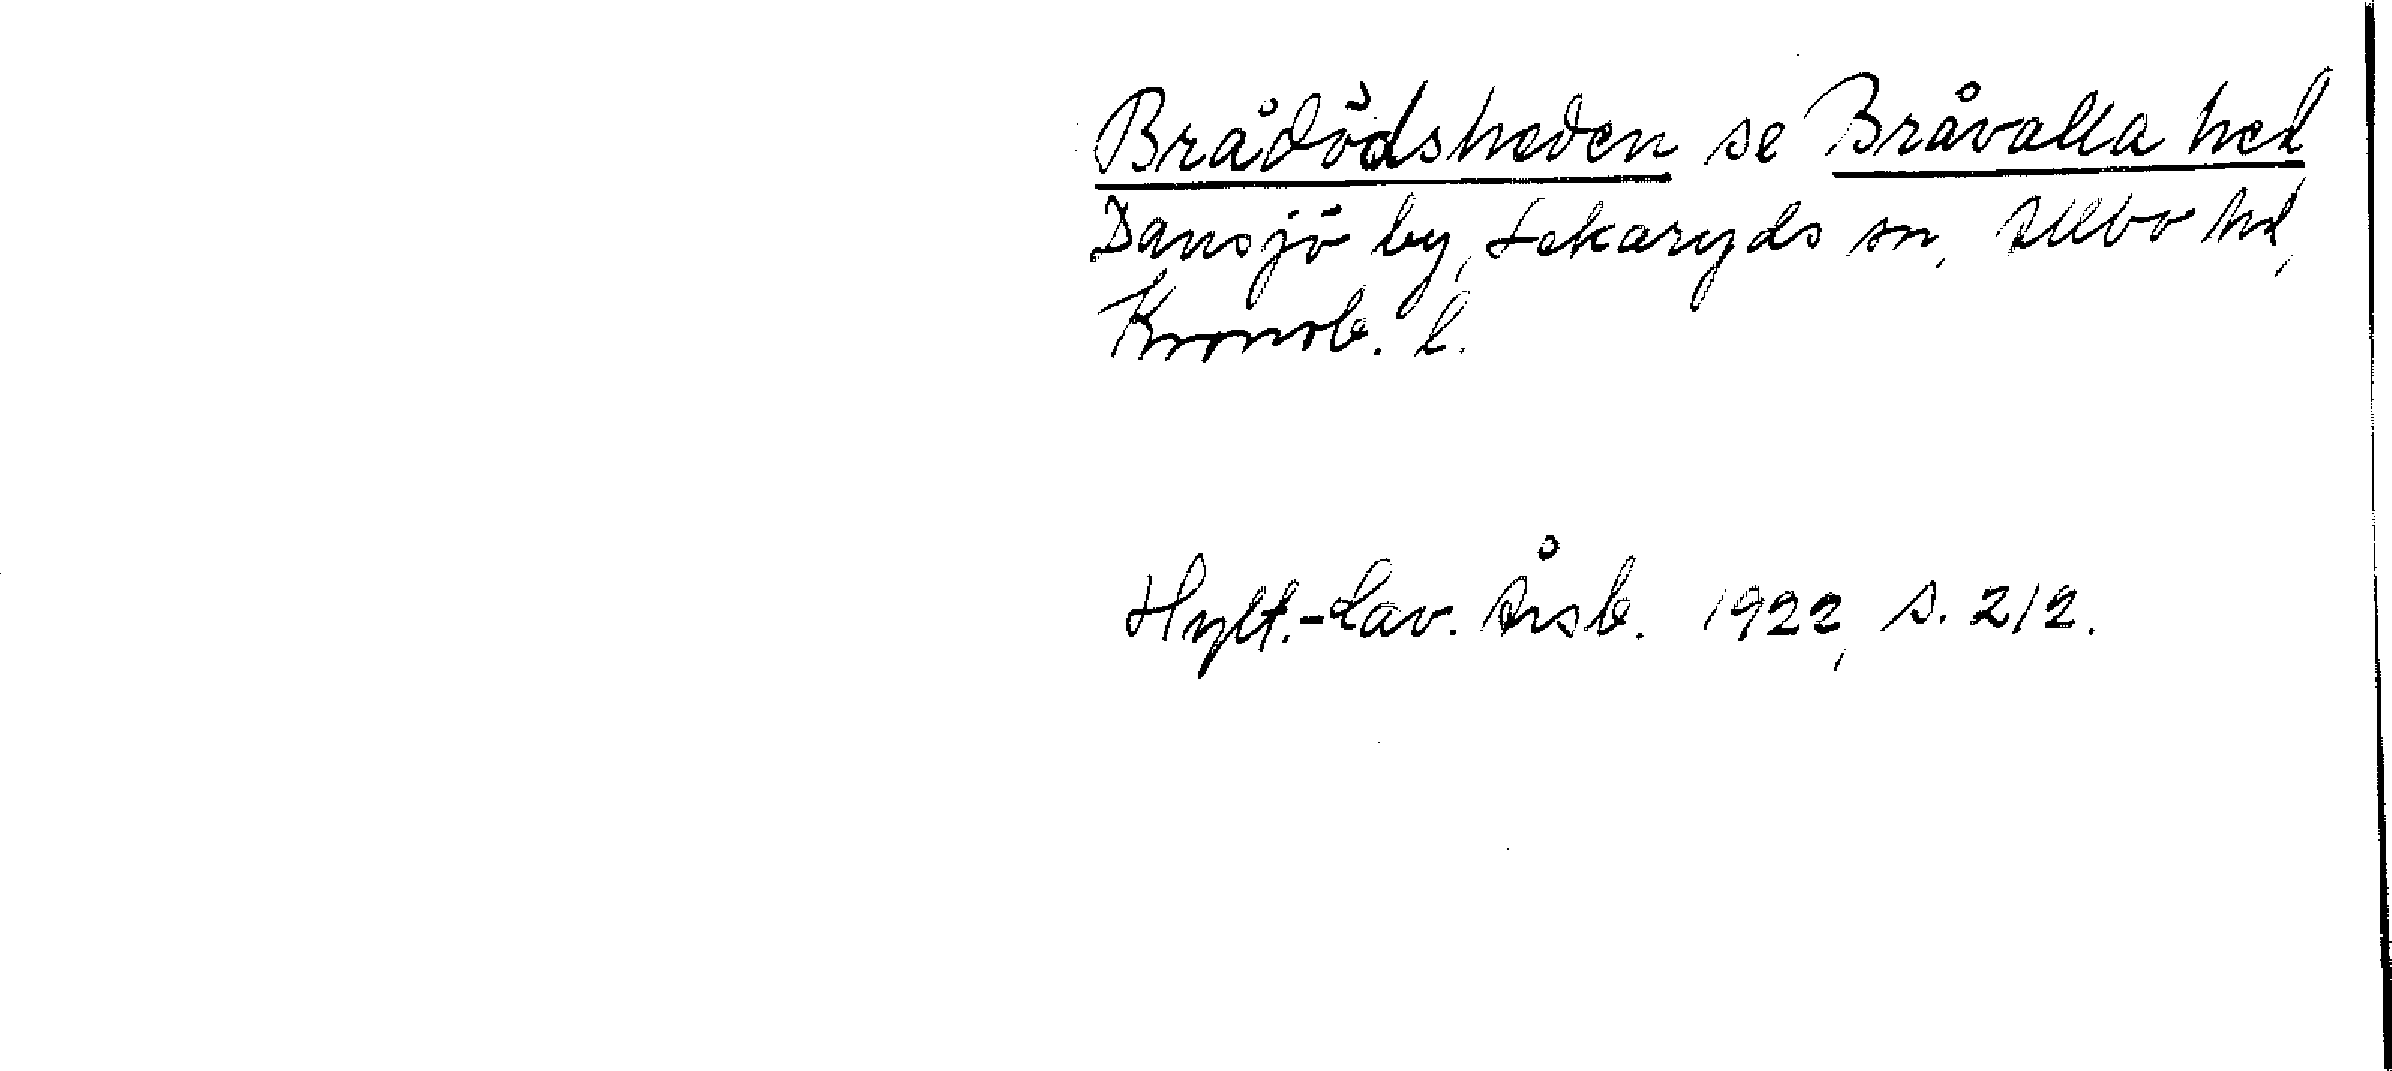 Brådödsheden se Bråvalla hed
Dansjö by, Lekaryds sn, Allbo hd,
Kronob. l.
Hylt.-Cav. Årsb. 1922, s. 212.